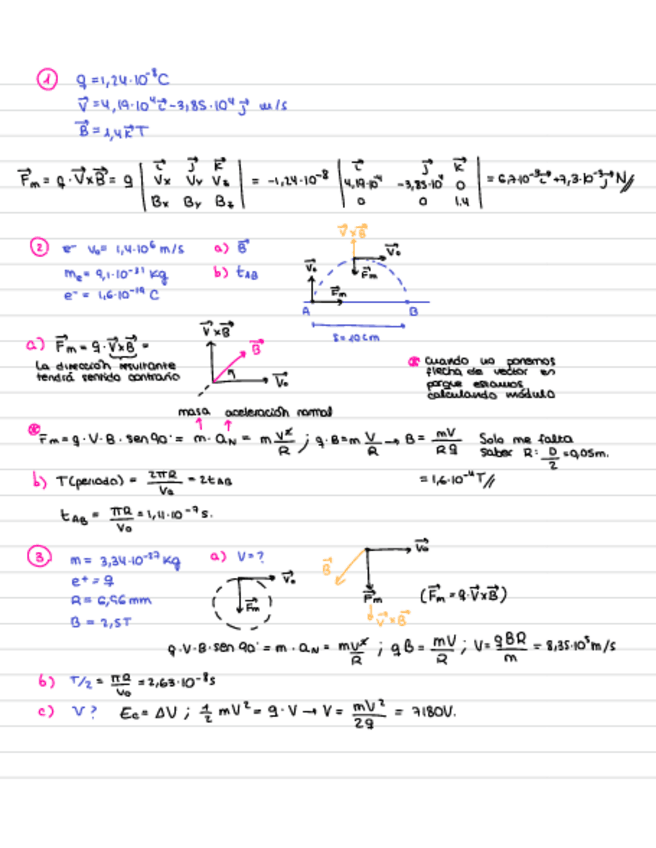 1 q = 1,24·10⁻⁸ C
v⃗ = 4,19·10⁴ i⃗ - 3,85·10⁴ j⃗ m/s
B⃗ = 1,4 k⃗ T
F⃗m = q·v⃗×B⃗ = q | i⃗ j⃗ k⃗ | = -1,24·10⁻⁸ | i⃗ j⃗ k⃗ | = 6,7·10⁻⁴ i⃗ + 7,3·10⁻⁴ j⃗ N //
Vx Vy Vz 4,19·10⁴ -3,85·10⁴ 0
Bx By Bz 0 0 1.4
2 e⁻ v₀ = 1,4·10⁶ m/s a) B⃗
me = 9,1·10⁻³¹ kg b) tAB
e⁻ = 1,6·10⁻¹⁹ C
V⃗×B⃗
V⃗₀ V⃗₀
F⃗m
F⃗m
A B
S = 10 cm
a) F⃗m = q·V⃗×B⃗ =
La dirección resultante
tendrá sentido contrario
V⃗×B⃗
B⃗
V⃗₀
* Cuando no ponemos
flecha de vector es
porque estamos
calculando módulo
masa aceleración normal
* Fm = q·V·B·sen 90° = m·aN = m V²/R ; q·B = m V/R → B = mV/Rq Solo me falta
saber R: D/2 = 0,05m.
= 1,6·10⁻⁴ T //
b) T(periodo) = 2πR/V₀ = 2tAB
tAB = πR/V₀ = 1,11·10⁻⁷ s.
3. m = 3,34·10⁻²⁷ kg a) V = ?
e⁺ = q
R = 6,96 mm
B = 2,5T
V⃗₀
F⃗m
V⃗₀
B⃗
F⃗m
V⃗×B⃗
(F⃗m = q·V⃗×B⃗)
q·V·B·sen 90° = m·aN = mV²/R ; qB = mV/R ; V = qBR/m = 8,35·10⁵ m/s
b) T/2 = πR/V₀ = 2,63·10⁻⁸ s
c) V? Ec = ΔV ; 1/2 mV² = q·V → V = mV²/2q = 7180V.